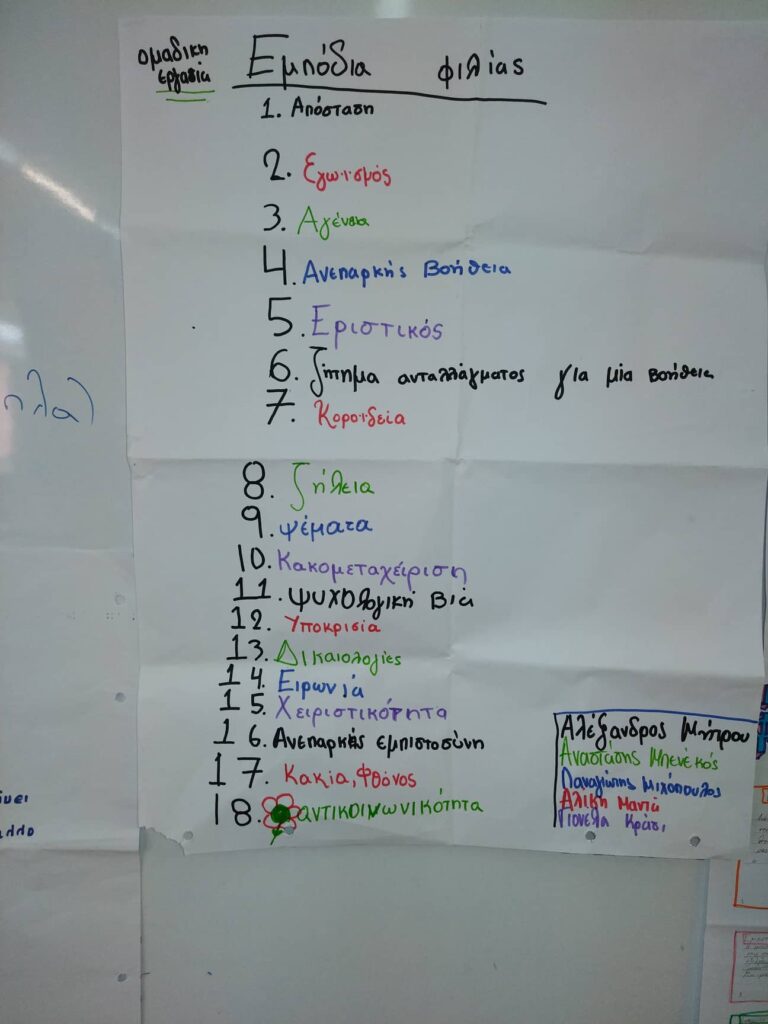 ομαδικη
εργασία
Εμπόδια φιλίας
1. Απόσταση
2. Εγωισμός
3. Αγένεια
4. Ανεπαρκής βοήθεια
5. Εριστικός
6. ζήτημα ανταλλάγματος για μία βοήθεια
7. Κοροιδεία
8. ζήλεια
9. ψέματα
10. Κακομεταχείριση
11. ψυχολογική βία
12. Υποκρισία
13. Δικαιολογίες
14. Ειρωνία
15. Χειριστικότητα
16. Ανεπαρκής εμπιστοσύνη
17. Κακία, Φθόνος
18. αντικοινωνικότητα
Αλέξανδρος Μήτρου
Αναστάσης Μπενέκός
Παναγιώτης Μιχόπουλος
Αλίκη
Γιονέλα
ηλα)